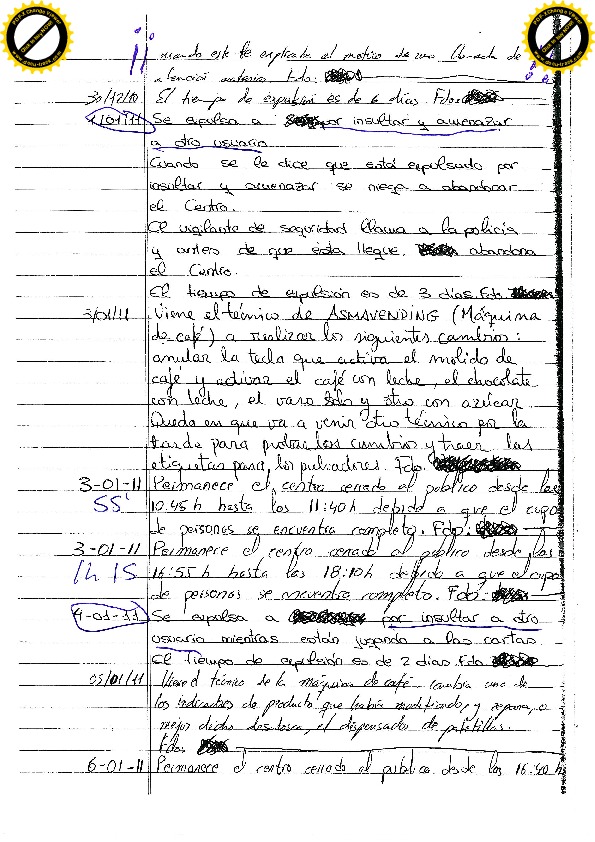 mando este le explicaba el motivo de una llamada de
atención anterior. Fdo:
30/12/10 El tiempo de expulsión es de 6 días. Fdo:
1/01/11 Se expulsa a por insultar y amenazar
a otro usuario
Cuando se le dice que está expulsado por
insultar y amenazar se niega a abandonar
el Centro.
El vigilante de seguridad llama a la policía
y antes de que ésta llegue, abandona
el Centro.
El tiempo de expulsión es de 3 días. Fdo
3/01/11 Viene el técnico de ASMAVENDING (Máquina
de café) a realizar los siguientes cambios:
anular la tecla que activa el molido de
café y activar el café con leche, el chocolate
con leche, el vaso sólo y otro con azúcar.
Queda en que va a venir otro técnico por la
tarde para probar los cambios y traer las
etiquetas para los pulsadores. Fdo.
3-01-11 Permanece el centro cerrado al público desde las
55' 10.45h hasta las 11:40h debido a que el cupo
de personas se encuentra completo. Fdo:
3-01-11 Permanece el centro cerrado al público desde las
1h 15 16:55h hasta las 18:10h debido a que el cupo
de personas se encuentra completo. Fdo:
4-01-11 Se expulsa a por insultar a otro
usuario mientras están jugando a las cartas.
El Tiempo de expulsión es de 2 días. Fdo
05/01/11 Viene el técnico de la máquina de café, cambia uno de
los indicadores de producto que había modificado, y repara, o
mejor dicho desatasca, el dispensador de paletillas.
Fdo:
6-01-11 Permanece el centro cerrado al público desde las 16:40h